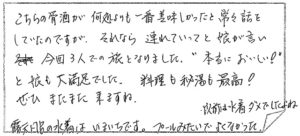 こちらの食酒が何処よりも一番美味しかったと常々話を
していたのですが、それなら連れていってと娘が言い
今回3人での旅となりました。“本当においしい!!”
と娘も大満足でした。料理も秘湯も最高!
ぜひまたまた来ますね。
以前は水着ダメでしたよね。
露天風呂の水着は、いまいちです。プールみたいでよくなかった